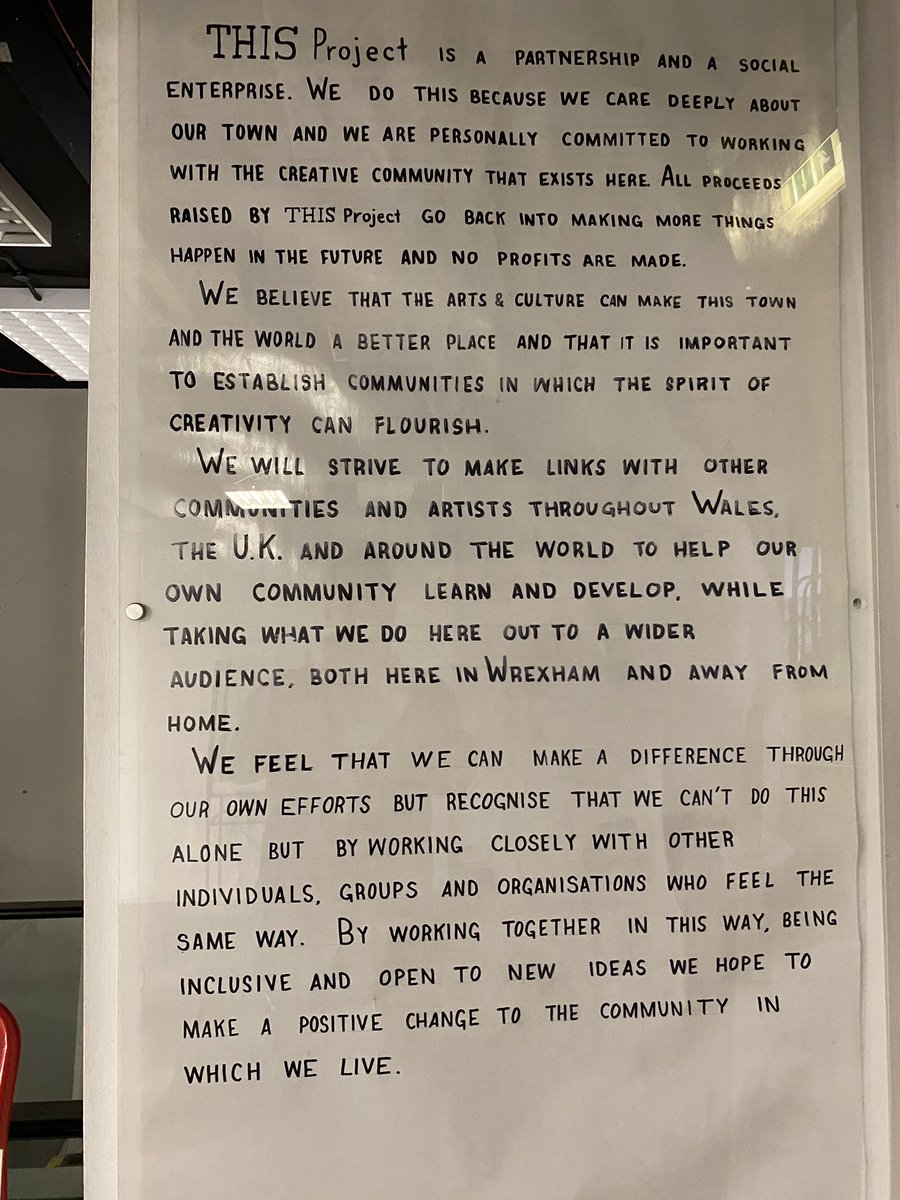 THIS Project IS A PARTNERSHIP AND A SOCIAL
ENTERPRISE. WE DO THIS BECAUSE WE CARE DEEPLY ABOUT
OUR TOWN AND WE ARE PERSONALLY COMMITTED TO WORKING
WITH THE CREATIVE COMMUNITY THAT EXISTS HERE. ALL PROCEEDS
RAISED BY THIS Project GO BACK INTO MAKING MORE THINGS
HAPPEN IN THE FUTURE AND NO PROFITS ARE MADE.
WE BELIEVE THAT THE ARTS & CULTURE CAN MAKE THIS TOWN
AND THE WORLD A BETTER PLACE AND THAT IT IS IMPORTANT
TO ESTABLISH COMMUNITIES IN WHICH THE SPIRIT OF
CREATIVITY CAN FLOURISH.
WE WILL STRIVE TO MAKE LINKS WITH OTHER
COMMUNITIES AND ARTISTS THROUGHOUT WALES,
THE U.K. AND AROUND THE WORLD TO HELP OUR
OWN COMMUNITY LEARN AND DEVELOP, WHILE
TAKING WHAT WE DO HERE OUT TO A WIDER
AUDIENCE, BOTH HERE IN WREXHAM AND AWAY FROM
HOME.
WE FEEL THAT WE CAN MAKE A DIFFERENCE THROUGH
OUR OWN EFFORTS BUT RECOGNISE THAT WE CAN'T DO THIS
ALONE BUT BY WORKING CLOSELY WITH OTHER
INDIVIDUALS, GROUPS AND ORGANISATIONS WHO FEEL THE
SAME WAY. BY WORKING TOGETHER IN THIS WAY, BEING
INCLUSIVE AND OPEN TO NEW IDEAS WE HOPE TO
MAKE A POSITIVE CHANGE TO THE COMMUNITY IN
WHICH WE LIVE.